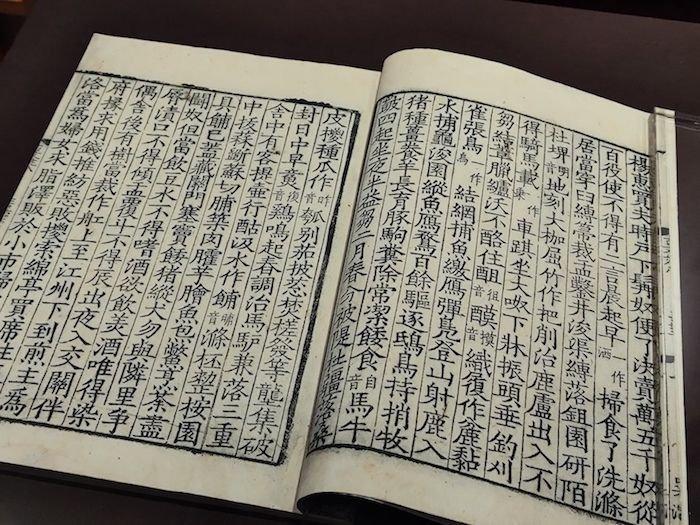 楊惠買夫時戶下髯奴便了決賣萬五千奴從
百役使不得有二言晨起早洒一作掃食了洗滌
居當穿臼縛箒裁盂鑿井浚渠縛落鉏園研陌
杜埤明音地刻大枷屈竹作把削治鹿盧出入不
得騎馬載一作乘車踑坐大呶下牀振頭垂釣刈
芻結葦臘纑沃不酪住酤音徂醭音模織履作麤黏
雀張烏一作鳥結網捕魚繳鴈彈鳧登山射鹿入
水捕龜浚園縱魚鴈鶩百餘驅逐鴟鳥持捎牧
猪種薑養羊長育豚駒糞除常潔餧食音自馬牛
鼓四起坐夜半益芻二月春分被隄杜疆落桑
皮椶種瓜作一作昨瓠別茄披葱焚槎發芋龍集破
封日中早音後鷄鳴起舂調治馬驢兼落三重
舍中有客提壺行酤汲水作餔音哺滌杯整桉園
中拔蒜斵蘇切脯築肉臛芋膾魚炰鱉烹茶盡
具餔已蓋藏關門塞竇餧猪縱犬勿與隣里爭
鬬奴但當飲豆水不得嗜酒欲飲美酒唯得染
脣漬口不得傾盂覆斗不得辰出夜入交關伴
偶舍後有樹當裁作舡上至江州下到前主爲
府掾求用錢推紡惡敗椶索綿亭買席往
落當爲婦女求脂澤販於小市歸